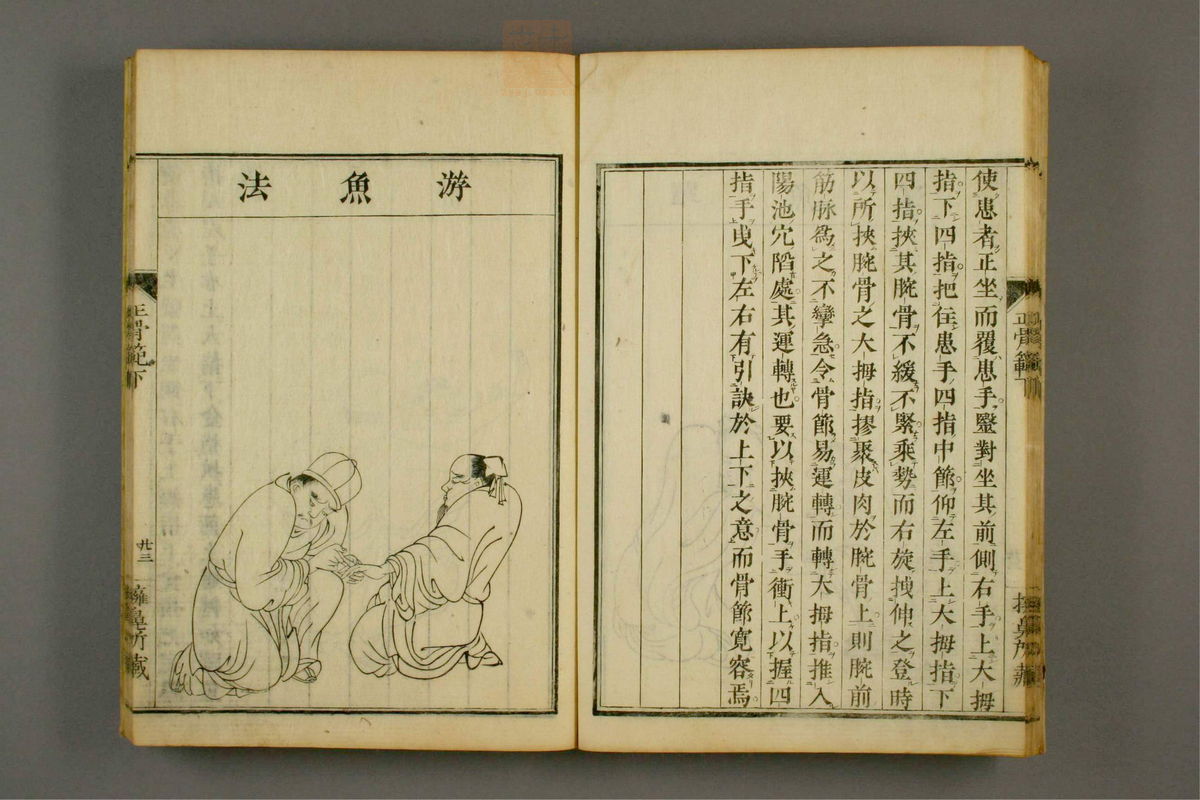 使患者正坐而覆患手鹥對坐其前側右手上大拇
指下四指把住患手四指中節仰左手上大拇指下
四指挾其腕骨不緩不緊乘勢而右旋拽伸之登時
以所挾腕骨之大拇指摎聚皮肉於腕骨上則腕前
筋脉爲之不攣急令骨節易運轉而轉大拇指推入
陽池穴陷處其運轉也要以挾腕骨手衝上以握四
指手曳下左右有引訣於上下之意而骨節寛容焉
正骨範下
游魚法
正骨範下
廿三
擁鼻所藏